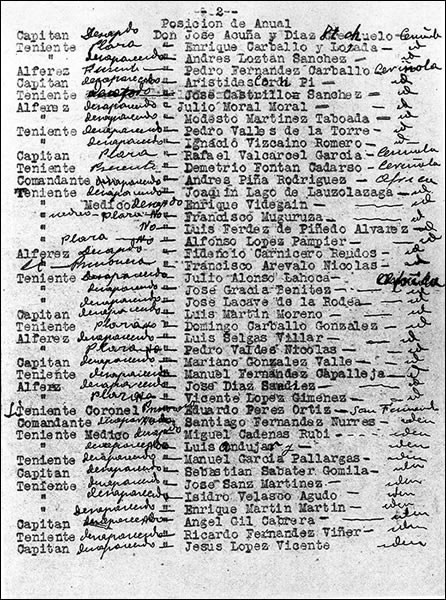 - 2 -
Posicion de Anual
Capitan desapdo Don Jose Acuña y Diaz Ceriñola
Teniente Plaza " Enrique Carballo y Lozada - id
" desaparecido " Andres Loztan Sanchez - id
Alferez Presente " Pedro Fernandez Carballo Ceriñola
Capitan desaparecido " Aristides Pi - id
Teniente " Jose Cabtrilloz Sanchez - id
Alferez desaparecido " Julio Moral Moral - id
" desaparecido " Modesto Martinez Taboada - id
Teniente " Pedro Valles de la Torre - id
" desaparecido " Ignacio Vizcaino Romero - id
Capitan Plaza " Rafael Valcarcel Garcia - Ceriñola
Teniente Presente " Demetrio Fontan Cadarso - Ceriñola
Comandante desaparecido " Andres Piña Rodriguez - Africa
Teniente " Joaquin Lago de Lauzolazaga - id
Medico desapdo " Enrique Videgain - id
" plaza No " Francisco Muguruza - id
" No " Luis Ferdez de Piñedo Alvarez id
" Plaza No " Alfonso Lopez Pampier - id
Alferez desapdo " Fidencio Carnicero Reudos - id
" " Francisco Arevalo Nicolas - id
Teniente desaparecido " Julio Alonso Lahoca -
" desaparecido " Jose Gracia Benitez - id
" desaparecido " Jose Lacave de la Rodea - id
Capitan desaparecido " Luis Martin Moreno - id
Teniente plaza no " Domingo Carballo Gonzalez - id
Alferez desaparecido " Luis Selgas Villar - id
" Plaza no " Pedro Valdes Nicolas - id
Capitan desaparecido " Mariano Gonzalez Valle - id
Teniente desaparecido " Manuel Fernandez Capalleja - id
Alferz desaparecido " Jose Diaz Sandiez - id
" Plaza " Vicente Lopez Gimenez - id
Teniente Coronel " Eduardo Perez Ortiz - San Fernando
Comandante " Santiago Fernandez Nurres - idem
Teniente Medico " Miguel Cadenas Rubi - idem
" desaparecido " Luis Andujar y - idem
Teniente desaparecido " Manuel Garcia Pallargas - idem
Capitan desaparecido " Sebastian Sabater Gomila - idem
Teniente desaparecido " Jose Sanz Martinez - idem
" desaparecido " Isidro Velasco Agudo - idem
" desaparecido " Enrique Martin Martin - idem
Capitan desaparecido " Angel Gil Cabrera - idem
Teniente desaparecido " Ricardo Fernandez Viñer - idem
Capitan desaparecido " Jesus Lopez Vicente idem